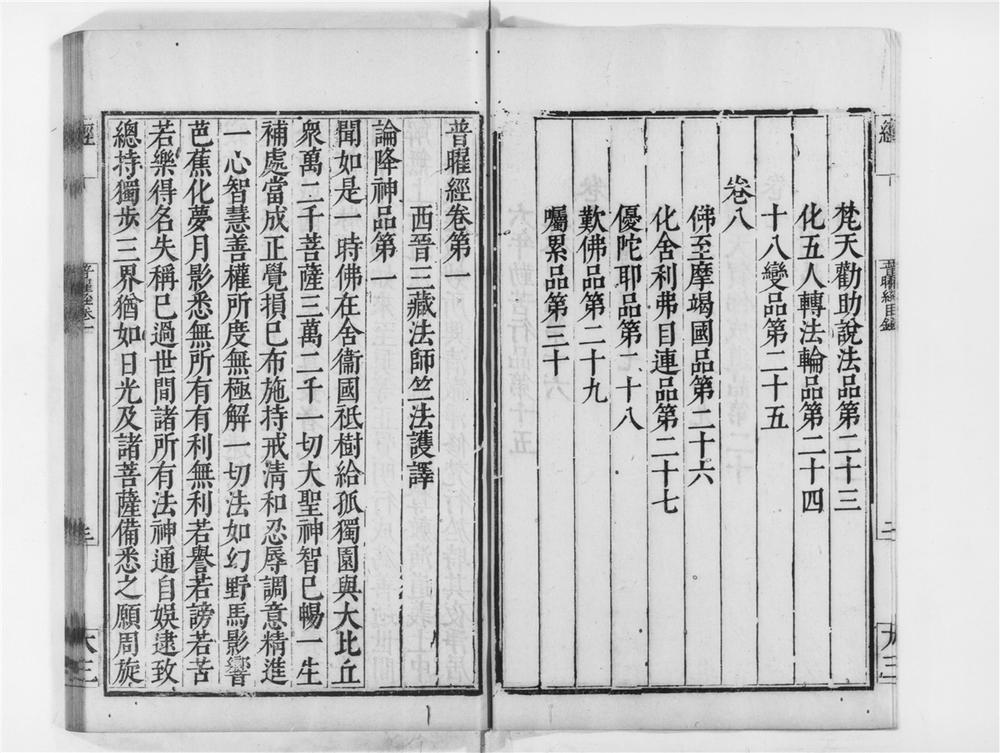 梵天勸助說法品第二十三
化五人轉法輪品第二十四
十八變品第二十五
卷八
佛至摩竭國品第二十六
化舍利弗目連品第二十七
優陀耶品第二十八
歎佛品第二十九
囑累品第三十
普曜經卷第一
西晉三藏法師竺法護譯
論降神品第一
聞如是一時佛在舍衞國祇樹給孤獨園與大比丘
衆萬二千菩薩三萬二千一切大聖神智已暢一生
補處當成正覺損己布施持戒清和忍辱調意精進
一心智慧善權所度無極解一切法如幻野馬影響
芭蕉化夢月影悉無所有有利無利若譽若謗若苦
若樂得名失稱已過世間諸所有法神通自娛逮致
總持獨步三界猶如日光及諸菩薩備悉之願周旋